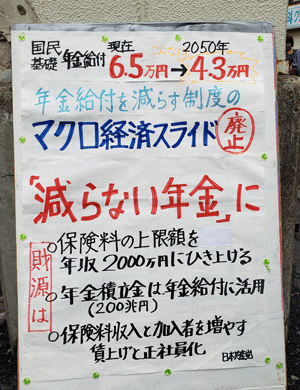 国民 現在 2050年
基礎 年金給付 6.5万円→4.3万円
年金給付を減らす制度の
マクロ経済スライド 廃止
「減らない年金」に
財源は
○保険料の上限額を
年収2000万円にひき上げる
○年金積立金は年金給付に活用
(200兆円)
○保険料収入と加入者を増やす
賃上げと正社員化
日本共産党